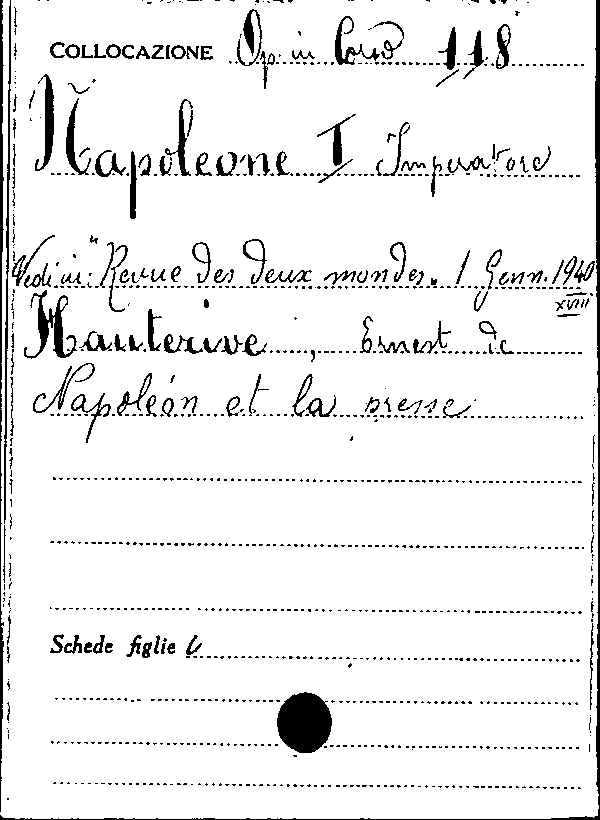 COLLOCAZIONE Op. in Corso 118
Napoleone I Imperatore
Vedi in: "Revue des deux mondes. 1 Genn. 1940
XVIII
Hauterive, Ernest de
Napoléon et la presse
Schede figlie